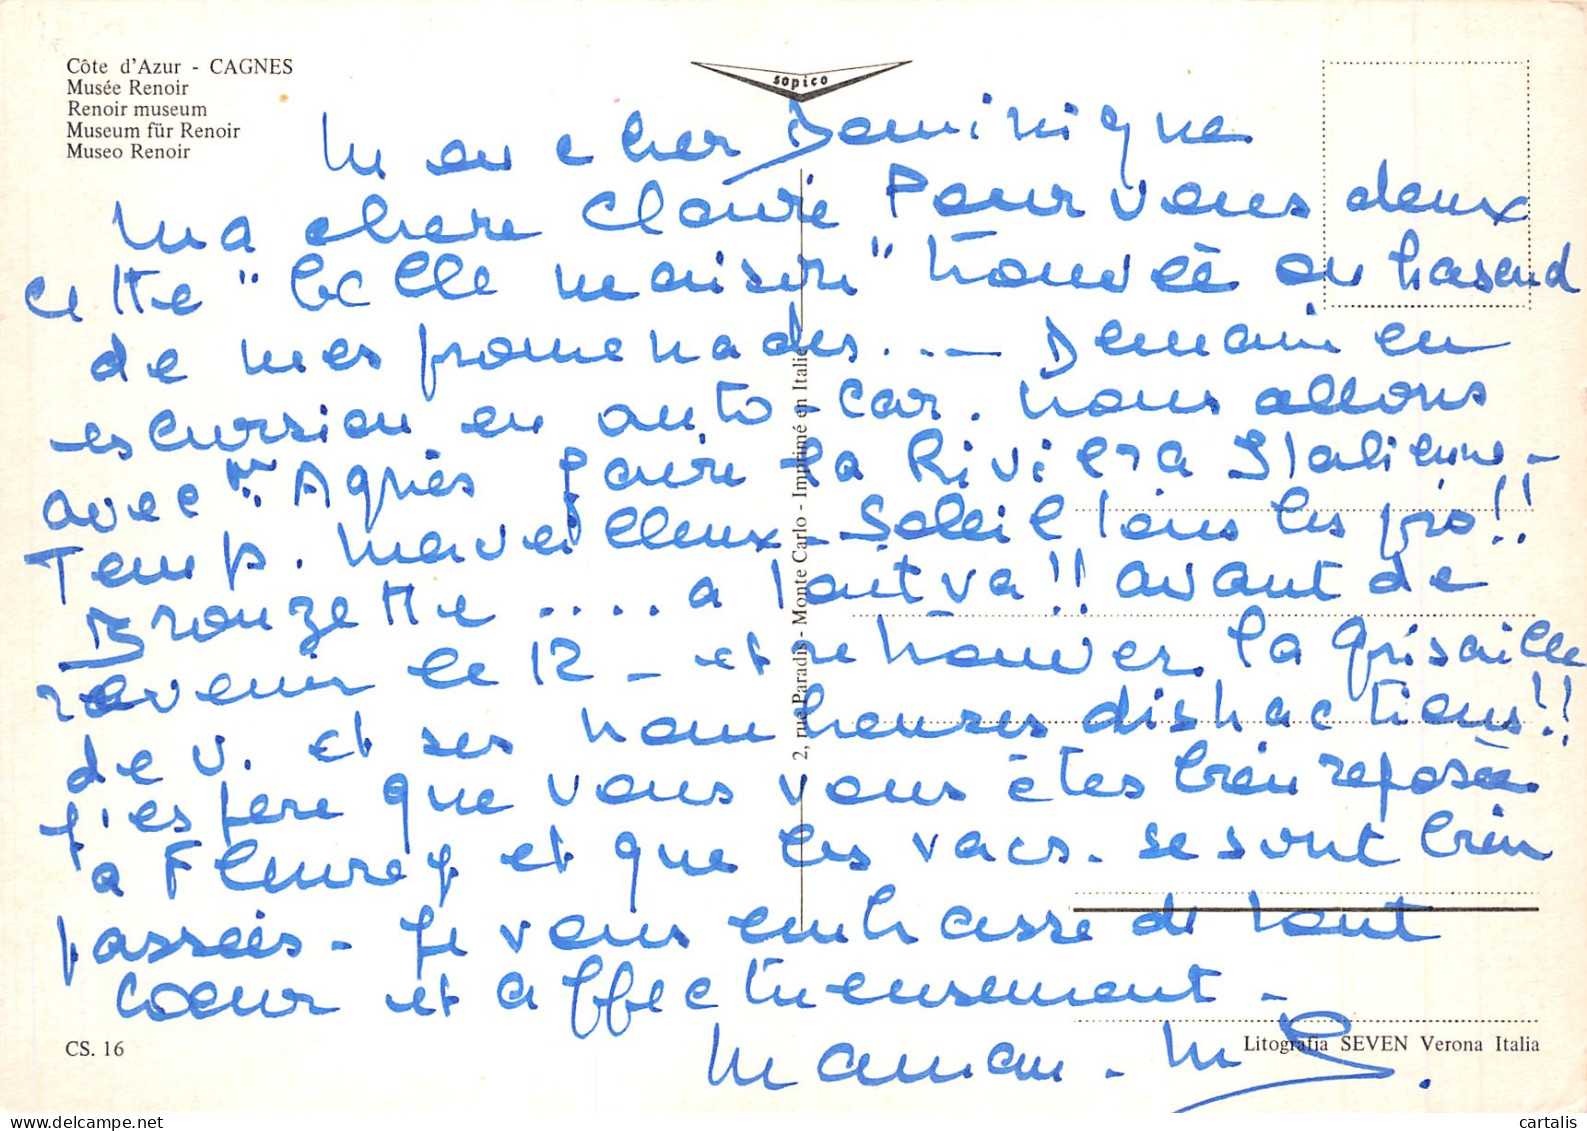 Côte d'Azur - CAGNES
Musée Renoir
Renoir museum
Museum für Renoir
Museo Renoir
sopico
Mon cher Dominique
Ma chere Claire Pour vous deux
cette "belle maison" trouvée au hasard
de mes promenades... — Demain en
escursion en auto-car. nous allons
avec Mme Agnès faire la Riviera Italienne -
Temps. merveilleux - Soleil tous les jrs!!
Bronzette .... a tout va!! avant de
revenir le 12 - et retrouver la grisaille
de V. et ses nombreuses distractions!!
J'espère que vous vous êtes bien reposés
à Fleurey et que les vacs. se sont bien
passées - Je vous embrasse de tout
cœur et affectueusement -
Maman - M
2, rue Paradis - Monte Carlo - Imprimé en Italie
CS. 16
Litografia SEVEN Verona Italia
cartalis